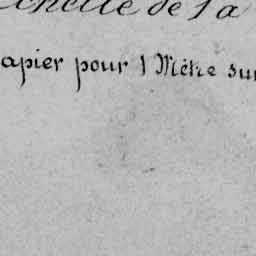 chelle de 1 a
apier pour 1 Mètre sur